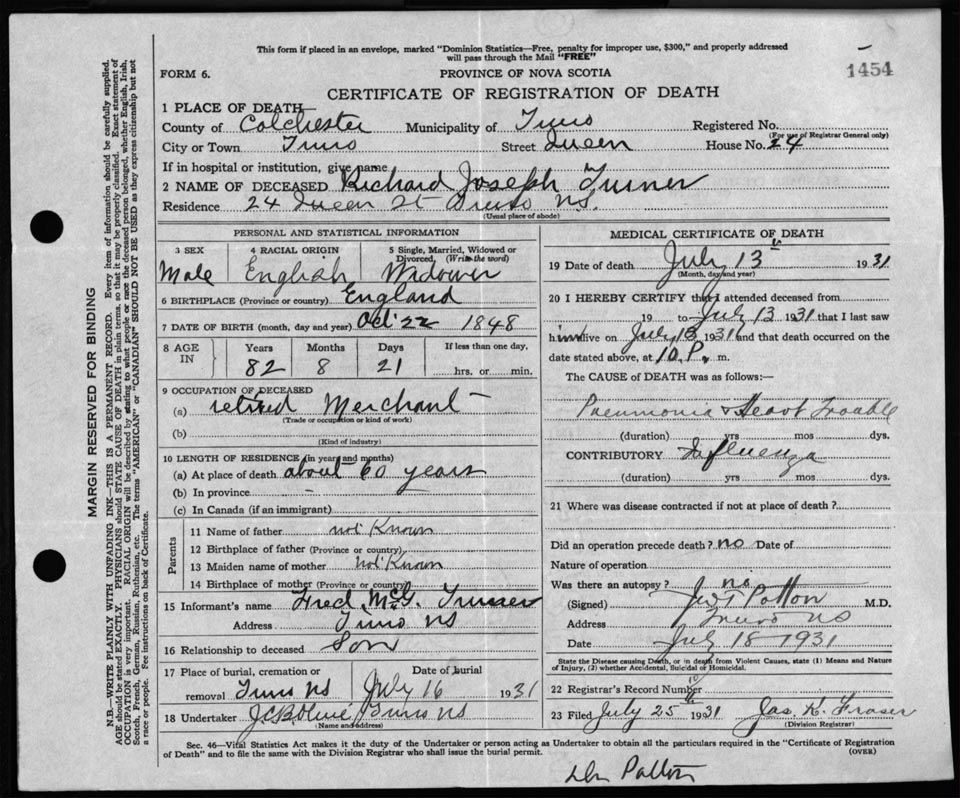 This form if placed in an envelope, marked "Dominion Statistics—Free, penalty for improper use, $300," and properly addressed
will pass through the Mail "FREE"
FORM 6.
PROVINCE OF NOVA SCOTIA
1454
CERTIFICATE OF REGISTRATION OF DEATH
1 PLACE OF DEATH
County of Colchester Municipality of Truro Registered No.
(For use of Registrar General only)
City or Town Truro Street Queen House No. 24
If in hospital or institution, give name
2 NAME OF DECEASED Richard Joseph Turner
Residence 24 Queen St Truro N.S.
(Usual place of abode)
PERSONAL AND STATISTICAL INFORMATION
3 SEX 4 RACIAL ORIGIN 5 Single, Married, Widowed or Divorced, (Write the word)
Male English Widower
6 BIRTHPLACE (Province or country) England
7 DATE OF BIRTH (month, day and year) Oct 22 1848
8 AGE IN Years Months Days If less than one day,
82 8 21 hrs. or min.
9 OCCUPATION OF DECEASED
(a) retired Merchant
(Trade or occupation or kind of work)
(b)
(Kind of industry)
10 LENGTH OF RESIDENCE (in years and months)
(a) At place of death about 60 years
(b) In province -
(c) In Canada (if an immigrant)
Parents
11 Name of father not Known
12 Birthplace of father (Province or country)
13 Maiden name of mother not Known
14 Birthplace of mother (Province or country)
15 Informant's name Fred McG. Turner
Address Truro NS
16 Relationship to deceased Son
17 Place of burial, cremation or removal Truro NS Date of burial July 16 1931
18 Undertaker Truro NS
(Name and address)
MEDICAL CERTIFICATE OF DEATH
19 Date of death July 13th 1931
(Month, day and year)
20 I HEREBY CERTIFY that I attended deceased from
19 to July 13 1931 that I last saw
him alive on July 13 1931 and that death occurred on the
date stated above, at 10 P. m.
The CAUSE of DEATH was as follows:
Pneumonia & Heart Trouble
(duration) yrs mos dys.
CONTRIBUTORY Influenza
(duration) yrs mos dys.
21 Where was disease contracted if not at place of death?
Did an operation precede death? no Date of
Nature of operation
Was there an autopsy? no
(Signed) Patton M.D.
Address Truro NS
Date July 18 1931
State the Disease causing Death, or in death from Violent Causes, state (1) Means and Nature
of Injury, (2) whether Accidental, Suicidal or Homicidal.
22 Registrar's Record Number
23 Filed July 25th 1931 Jas. K. Fraser
(Division Registrar)
Sec. 46—Vital Statistics Act makes it the duty of the Undertaker or person acting as Undertaker to obtain all the particulars required in the "Certificate of Registration
of Death" and to file the same with the Division Registrar who shall issue the burial permit.
(OVER)
Dr Patton
MARGIN RESERVED FOR BINDING
N.B.—WRITE PLAINLY WITH UNFADING INK—THIS IS A PERMANENT RECORD. Every item of information should be carefully supplied.
AGE should be stated EXACTLY. PHYSICIANS should STATE CAUSE OF DEATH in plain terms, so that it may be properly classified. Exact statement of
OCCUPATION is very important. RACIAL ORIGIN will be described by stating to what people or race the deceased person belonged, whether English, Irish,
Scotch, French, German, Russian, Ruthenian, etc. The terms "AMERICAN" or "CANADIAN" SHOULD NOT BE USED as they express citizenship but not
a race or people. See instructions on back of Certificate.